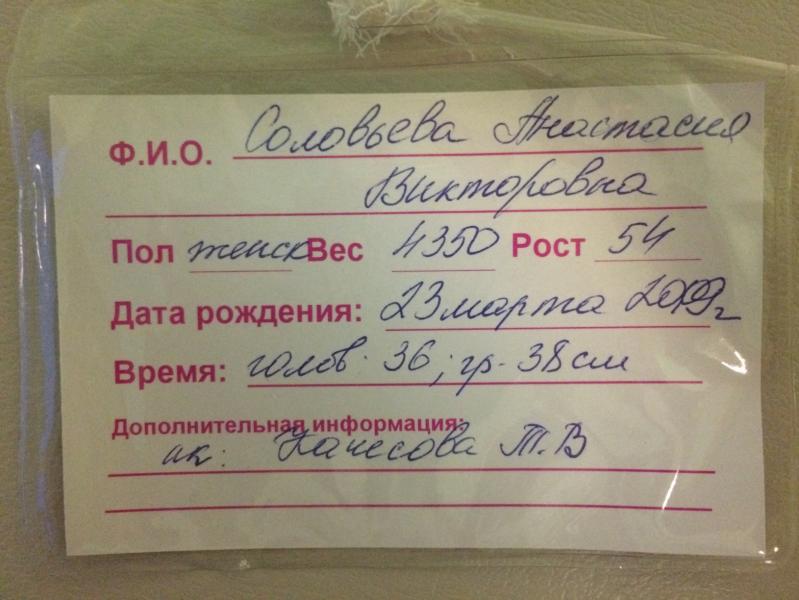 Ф.И.О. Соловьева Анастасия
Викторовна
Пол женск Вес 4350 Рост 54
Дата рождения: 23 марта 2009г
Время: голов. 36; гр. 38 см
Дополнительная информация:
ак: Качесова Т.В